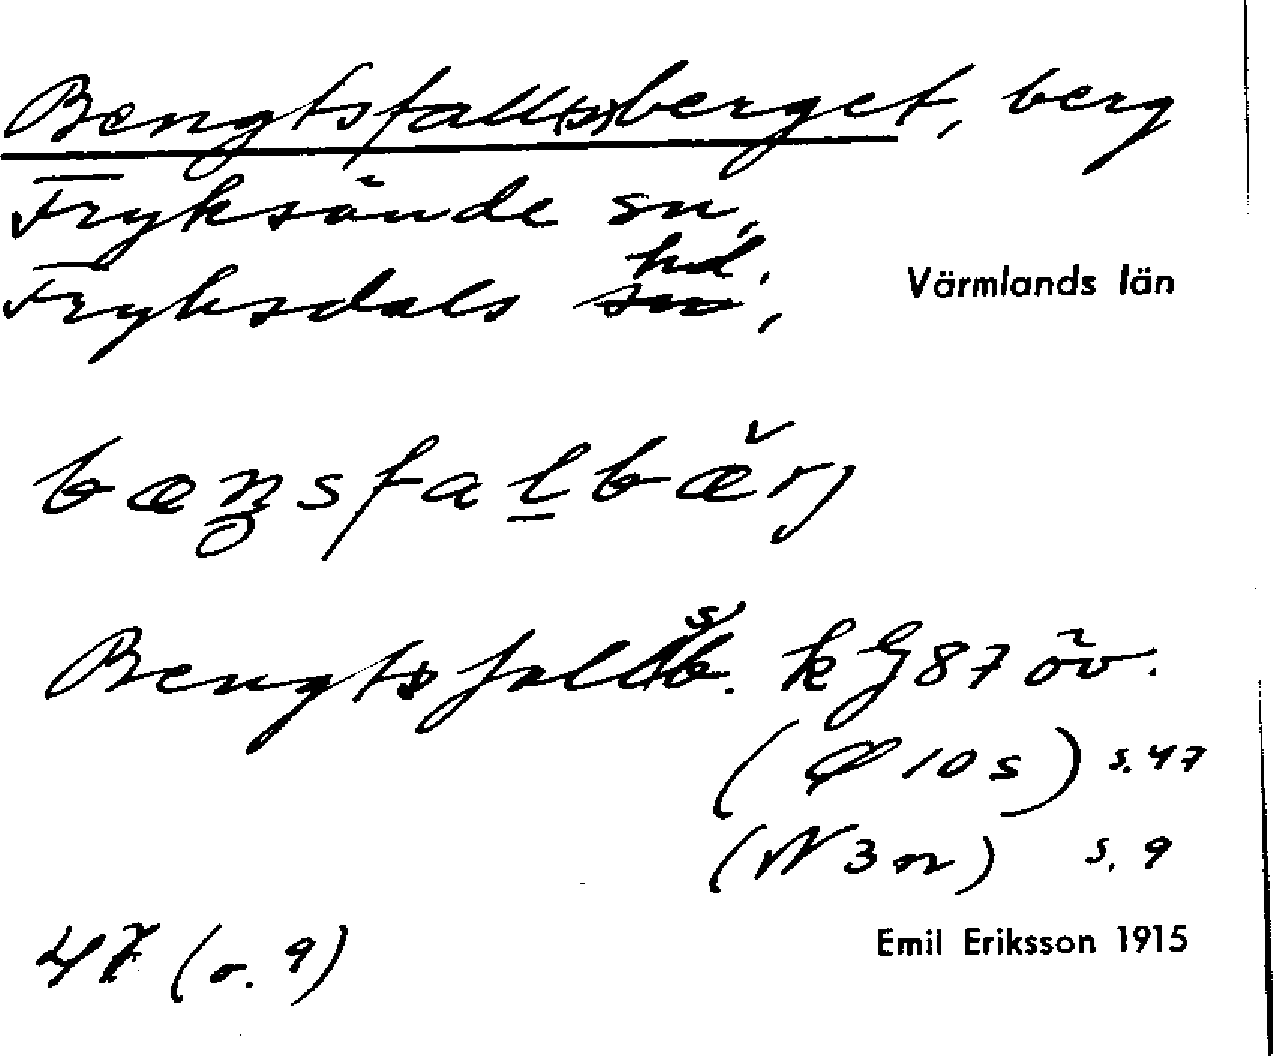 Bengtsfall(s)berget, berg
Fryksände sn,
Fryksdals hd,
Värmlands län
bæŋsfalbærj
Bengtsfall(s)b. kg 87 öv.
(Ø 10 s) s. 47
(N 3 n) s. 9
47 (o. 9)
Emil Eriksson 1915